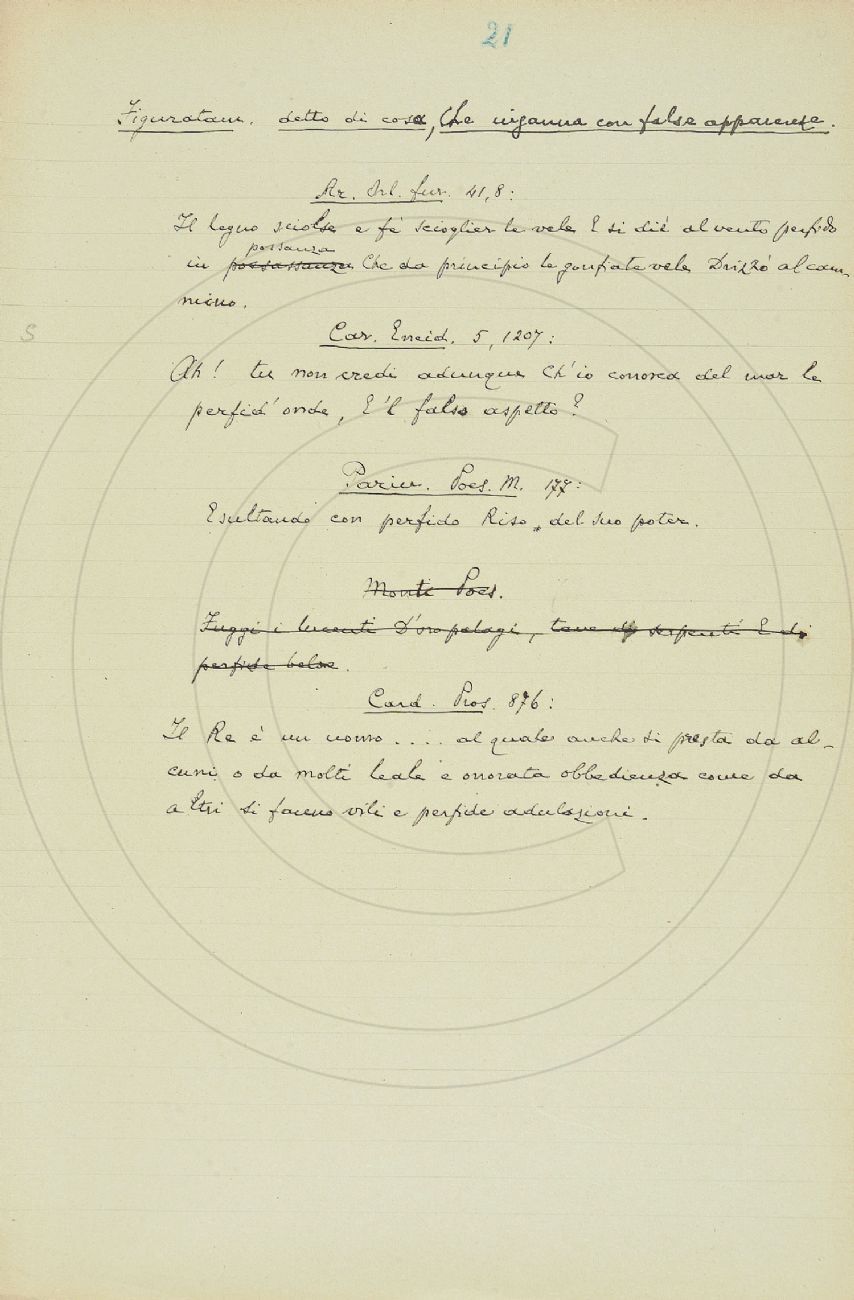 21
Figuratam. detto di cosa, Che inganna con false apparenze.
Ar. Orl. fur. 41, 8:
Il legno sciolse e fè scioglier le vele E si diè al vento perfido
possanza
in possassanza Che da principio le gonfiate vele Drizzò al cam-
mino.
S
Car. Eneid. 5, 1207:
Ah! tu non credi adunque Ch'io conosca del mar le
perfid'onde, E'l falso aspetto?
Parin. Poes. M. 177:
Esultando con perfido Riso del suo poter.
Monti Poes.
Fuggi i lucenti D'oro palagi, tane di serpenti E di
perfide belve.
Card. Pros. 876:
Il Re è un uomo .... al quale anche si presta da al-
cuni o da molti leale e onorata obbedienza come da
altri si fanno vili e perfide adulazioni.